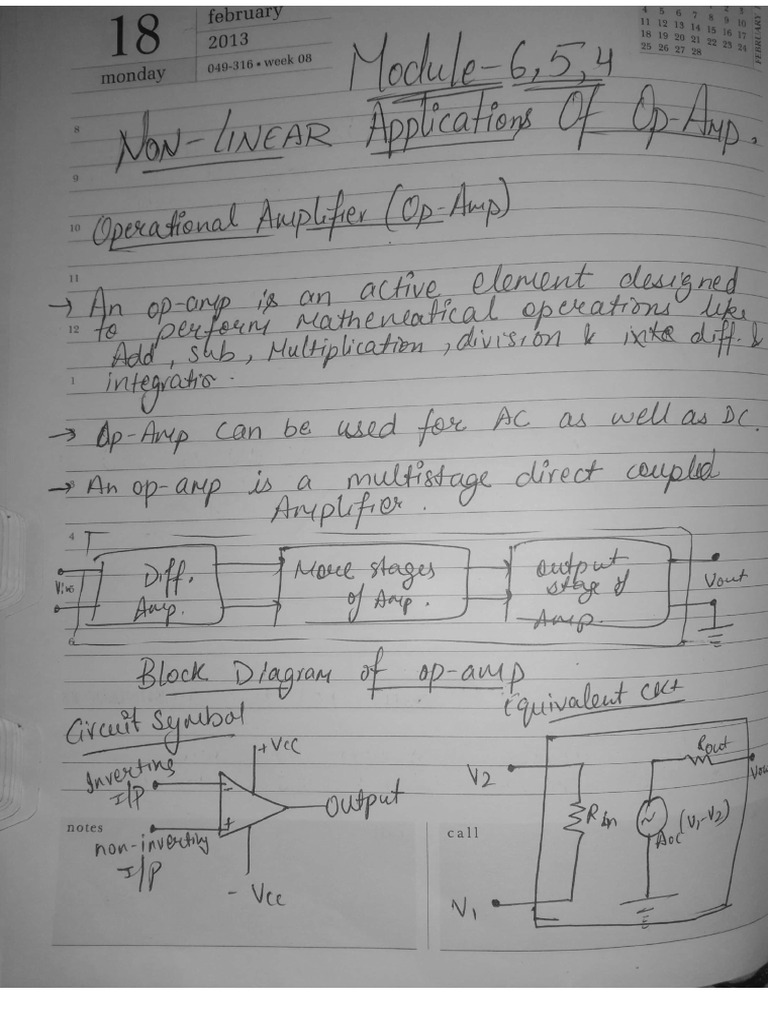 18
monday
february
2013
049-316 • week 08
4 5 6 7 8 9 10
11 12 13 14 15 16 17
18 19 20 21 22 23 24
25 26 27 28
FEBRUARY
Module-6,5,4
8
NON-LINEAR Applications Of Op-Amp.
9
10 Operational Amplifier (Op-Amp)
11
→ An op-amp is an active element designed
12 to perform Mathematical operations like
Add, sub, Multiplication, division & diff. &
1 integratio.
→ Op-Amp can be used for AC as well as DC.
→ An op-amp is a multistage direct coupled
Amplifier.
4
Vin
Diff.
Amp.
More stages
of Amp.
output
stage of
Amp.
Vout
6
Block Diagram of op-amp
Equivalent Ckt
Circuit Symbol
Inverting
I/P
+Vcc
-
+
output
non-inverting
I/P
- Vcc
notes
call
V2
V1
Rin
Rout
Vou
Aoc (V1-V2)